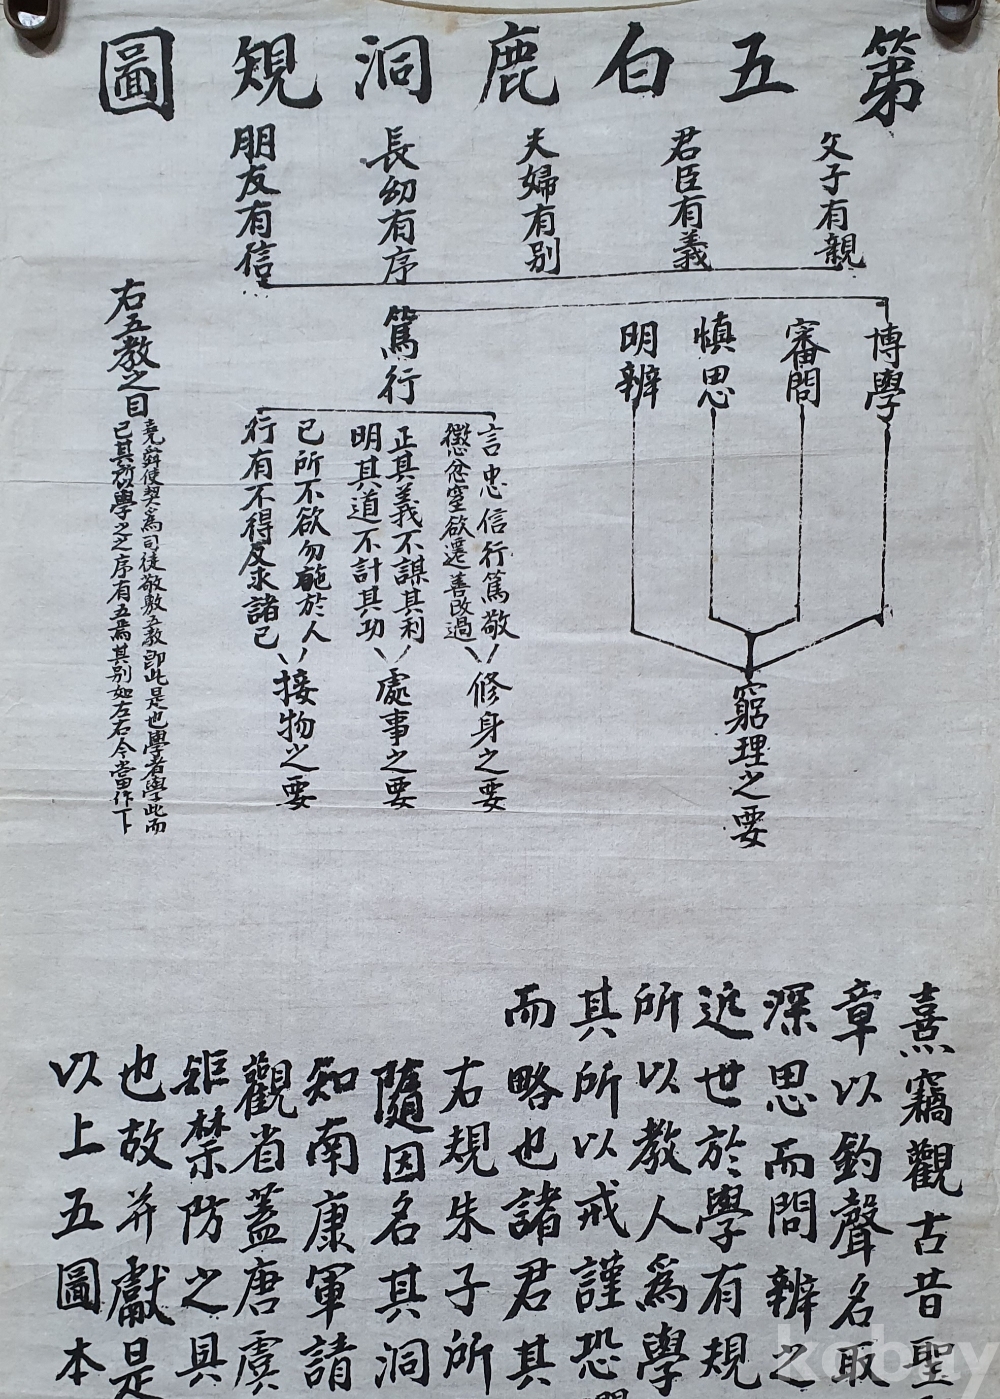 第五白鹿洞規圖
父子有親
君臣有義
夫婦有別
長幼有序
朋友有信
博學
審問
慎思
明辨
篤行
窮理之要
言忠信行篤敬
懲忿窒欲遷善改過
修身之要
正其義不謀其利
明其道不計其功
處事之要
己所不欲勿施於人
行有不得反求諸己
接物之要
右五教之目
堯舜使契爲司徒敬敷五教即此是也學者學此而
已其所以學之之序有五焉其別如左右今當作下
熹竊觀古昔聖
章以釣聲名取
深思而問辨之
近世於學有規
所以教人爲學
其所以戒謹恐
而略也諸君其
右規朱子所
隨因名其洞
知南康軍請
觀省蓋唐虞
矩禁防之具
也故并獻是
以上五圖本
kobay